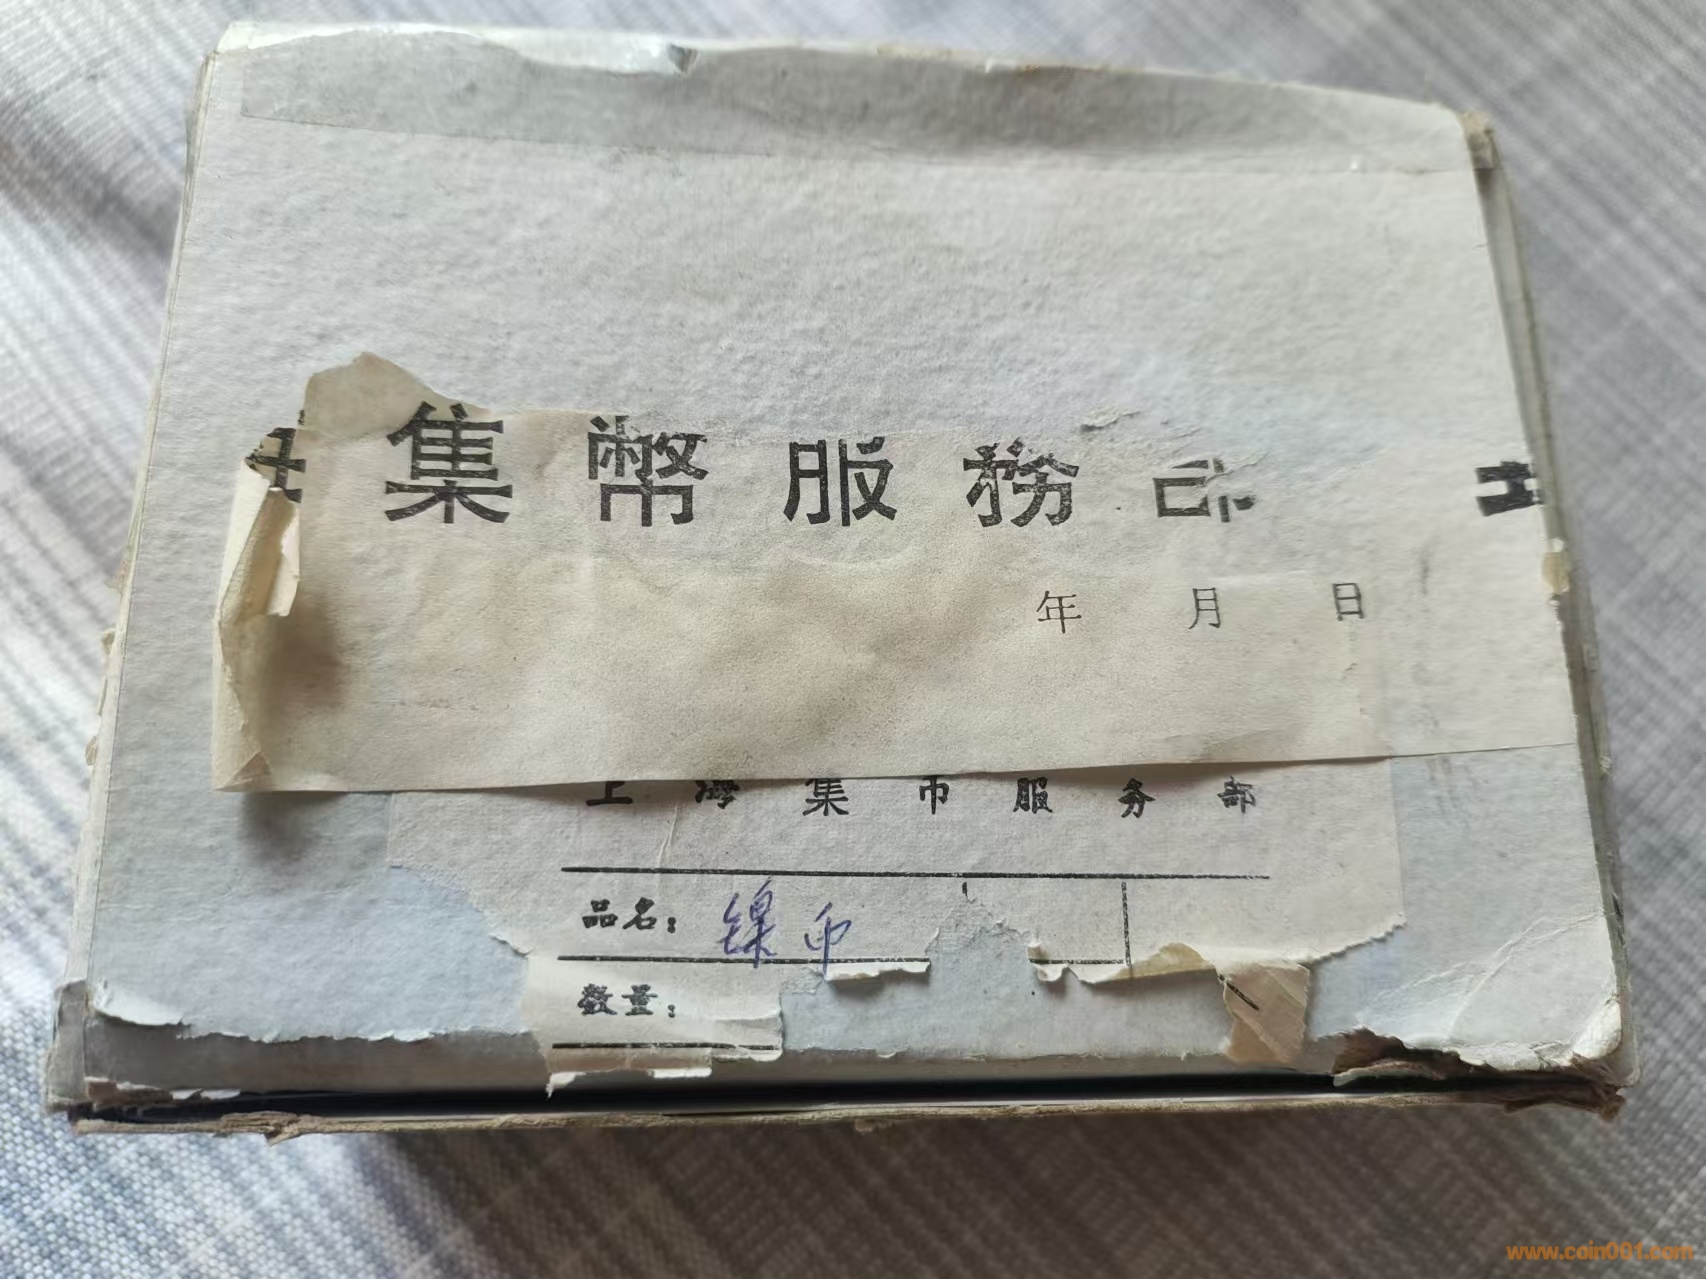 海集幣服務部 上
年 月 日
上海集币服务部
品名：镍币
数量：
www.coin001.com